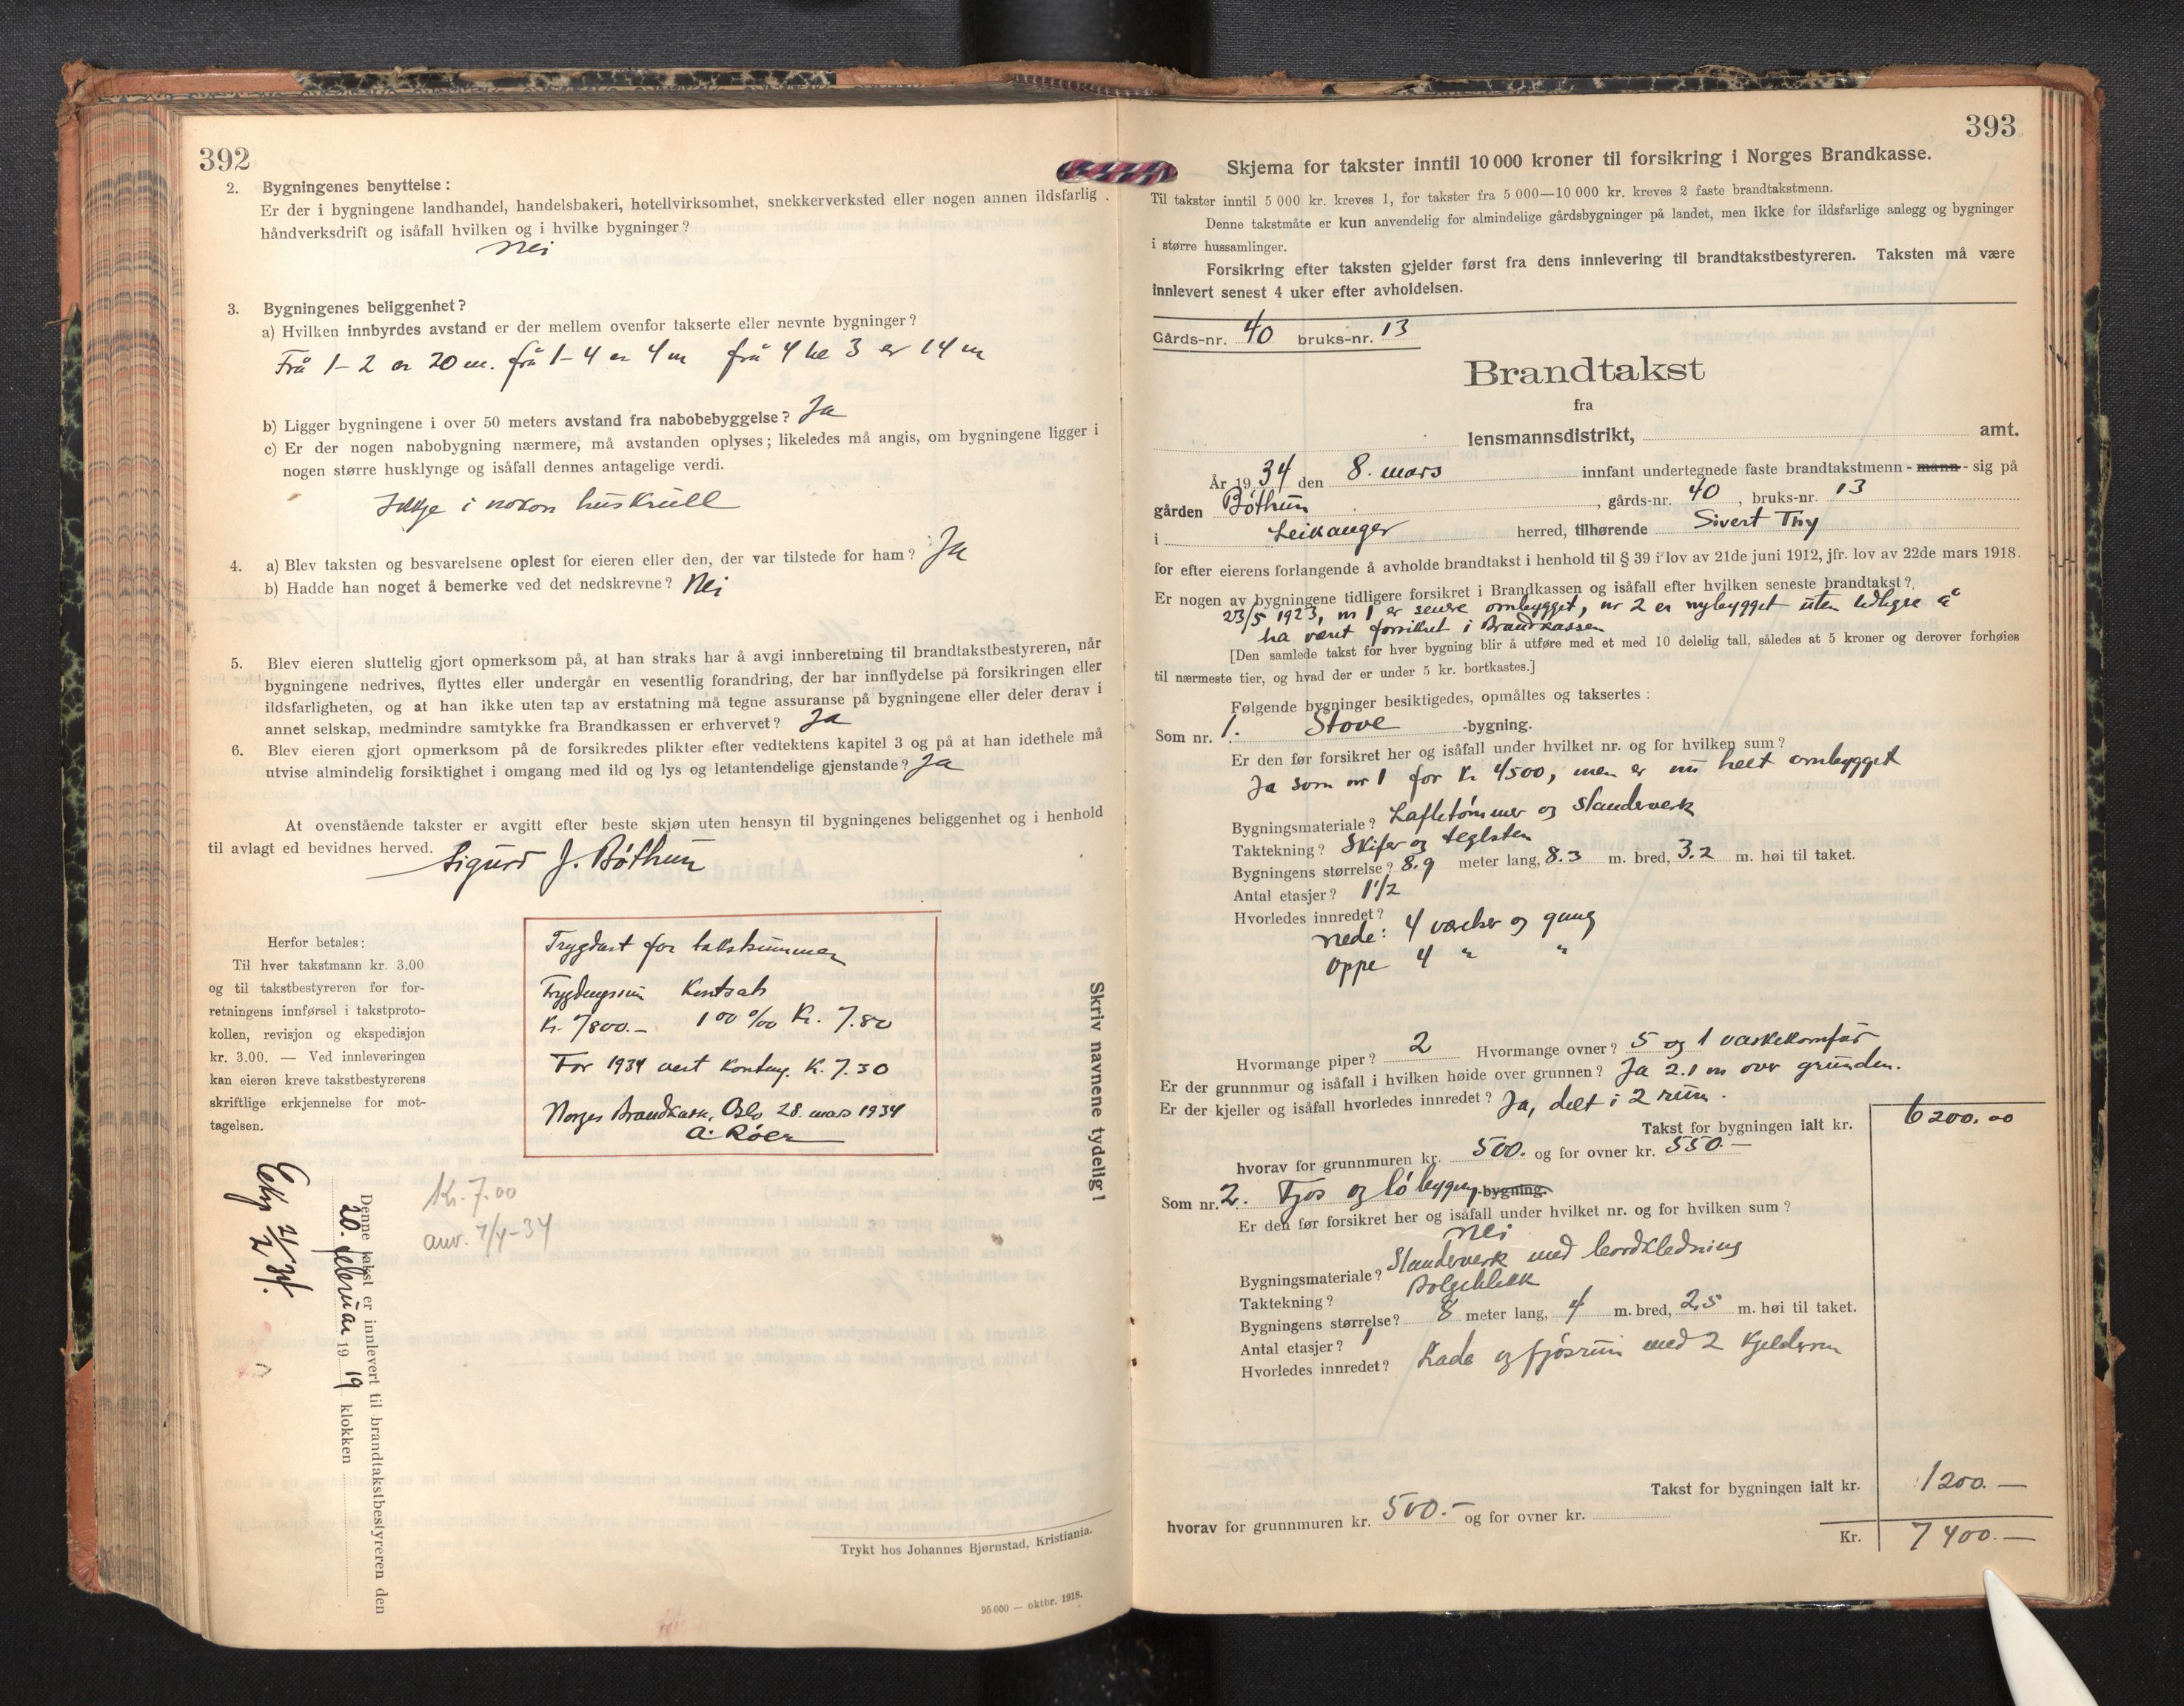 392
2. Bygningenes benyttelse:
Er der i bygningene landhandel, handelsbakeri, hotellvirksomhet, snekkerverksted eller nogen annen ildsfarlig
håndverksdrift og isåfall hvilken og i hvilke bygninger?
Nei
3. Bygningenes beliggenhet?
a) Hvilken innbyrdes avstand er der mellem ovenfor takserte eller nevnte bygninger?
Frå 1-2 er 20 m. frå 1-4 er 4 m frå 4 te 3 er 14 m
b) Ligger bygningene i over 50 meters avstand fra nabobebyggelse? Ja
c) Er der nogen nabobygning nærmere, må avstanden oplyses; likeledes må angis, om bygningene ligger i
nogen større husklynge og isåfall dennes antagelige verdi.
Ikkje i nokon huskrull
4. a) Blev taksten og besvarelsene oplest for eieren eller den, der var tilstede for ham? Ja
b) Hadde han noget å bemerke ved det nedskrevne? Nei
5. Blev eieren sluttelig gjort opmerksom på, at han straks har å avgi innberetning til brandtakstbestyreren, når
bygningene nedrives, flyttes eller undergår en vesentlig forandring, der har innflydelse på forsikringen eller
ildsfarligheten, og at han ikke uten tap av erstatning må tegne assuranse på bygningene eller deler derav i
annet selskap, medmindre samtykke fra Brandkassen er erhvervet? Ja
6. Blev eieren gjort opmerksom på de forsikredes plikter efter vedtektens kapitel 3 og på at han idethele må
utvise almindelig forsiktighet i omgang med ild og lys og letantendelige gjenstande? Ja
At ovenstående takster er avgitt efter beste skjøn uten hensyn til bygningenes beliggenhet og i henhold
til avlagt ed bevidnes herved.
Sigurd J. Bøthun
Herfor betales:
Til hver takstmann kr. 3.00
og til takstbestyreren for for-
retningens innførsel i takstproto-
kollen, revisjon og ekspedisjon
kr. 3.00. — Ved innleveringen
kan eieren kreve takstbestyrerens
skriftlige erkjennelse for mot-
tagelsen.
Trygdast for takstsummen
Trygdingssum Kontsats
Kr. 7800.- 1 00 º/oo Kr. 7.80
For 1934 vert Konting. Kr. 7.30
Norges Brandkasse, Oslo 28. mars 1934
A. Róer
Skriv navnene tydelig!
Kr. 7.00
anv. 7/4-34
Denne takst er innlevert til brandtakstbestyreren den
20. februar 19 19 klokken
21/2 34.
Trykt hos Johannes Bjørnstad, Kristiania.
95 000 — oktbr. 1918.
393
Skjema for takster inntil 10 000 kroner til forsikring i Norges Brandkasse.
Til takster inntil 5 000 kr. kreves 1, for takster fra 5 000—10 000 kr. kreves 2 faste brandtakstmenn.
Denne takstmåte er kun anvendelig for almindelige gårdsbygninger på landet, men ikke for ildsfarlige anlegg og bygninger
i større hussamlinger.
Forsikring efter taksten gjelder først fra dens innlevering til brandtakstbestyreren. Taksten må være
innlevert senest 4 uker efter avholdelsen.
Gårds-nr. 40 bruks-nr. 13
Brandtakst
fra
lensmannsdistrikt, amt.
År 19 34 den 8. mars innfant undertegnede faste brandtakstmenn - mann - sig på
gården Bøthun, gårds-nr. 40, bruks-nr. 13
i Leikanger herred, tilhørende Sivert Thy
for efter eierens forlangende å avholde brandtakst i henhold til § 39 i lov av 21de juni 1912, jfr. lov av 22de mars 1918.
Er nogen av bygningene tidligere forsikret i Brandkassen og isåfall efter hvilken seneste brandtakst?
23/5 1923, nr 1 er senere ombygget, nr 2 er nybygget uten tidligre å
ha været forsikret i Brandkassen
[Den samlede takst for hver bygning blir å utføre med et med 10 delelig tall, således at 5 kroner og derover forhøies
til nærmeste tier, og hvad der er under 5 kr. bortkastes.]
Følgende bygninger besiktigedes, opmåltes og taksertes:
Som nr. 1. Stove -bygning.
Er den før forsikret her og isåfall under hvilket nr. og for hvilken sum?
Ja som nr 1 for kr 4500, men er nu helt ombygget
Bygningsmateriale? Laftetømmer og standverk
Taktekning? Skifer og teglsten
Bygningens størrelse? 8.9 meter lang, 8.3 m. bred, 3.2 m. høi til taket.
Antal etasjer? 1 1/2
Hvorledes innredet?
Nede: 4 værelser og gang
Oppe 4 " "
Hvormange piper? 2 Hvormange ovner? 5 og 1 vaskekomfur
Er der grunnmur og isåfall i hvilken høide over grunnen? Ja 2.1 m over grunden.
Er der kjeller og isåfall hvorledes innredet? Ja, delt i 2 rum.
Takst for bygningen ialt kr. 6200.00
hvorav for grunnmuren kr. 500.- og for ovner kr. 550.—
Som nr. 2. Fjos og løbygng -bygning.
Er den før forsikret her og isåfall under hvilket nr. og for hvilken sum?
Nei
Bygningsmateriale? Standverk med bordkledning
Taktekning? Bølgeblekk
Bygningens størrelse? 8 meter lang, 4 m. bred, 2.5 m. høi til taket.
Antal etasjer? 1
Hvorledes innredet? Lade og fjøsrum med 2 Kjelderrum
Takst for bygningen ialt kr. 1200.—
hvorav for grunnmuren kr. 500.- og for ovner kr.
Kr. 7400.—